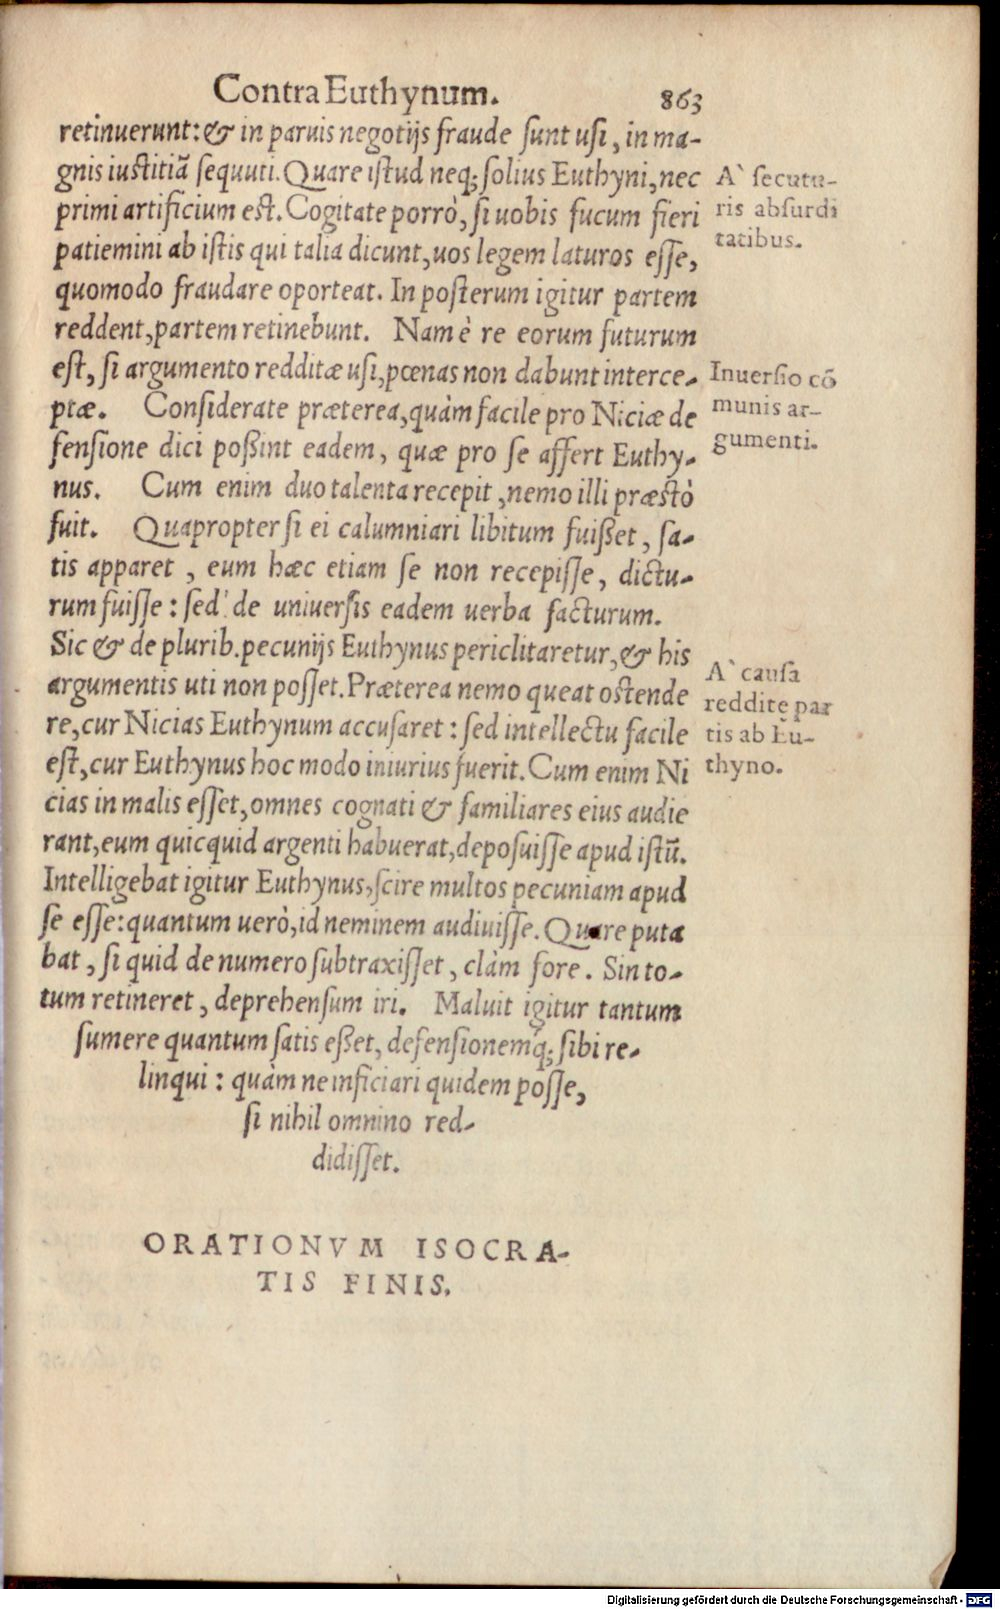 Contra Euthynum. 863
retinuerunt: & in paruis negotijs fraude sunt usi, in ma-
gnis iustitiã sequuti. Quare istud neq; solius Euthyni, nec
primi artificium est. Cogitate porrò, si uobis fucum fieri
patiemini ab istis qui talia dicunt, uos legem laturos esse,
quomodo fraudare oporteat. In posterum igitur partem
reddent, partem retinebunt. Nam è re eorum futurum
est, si argumento redditæ usi, pœnas non dabunt interce-
ptæ. Considerate præterea, quàm facile pro Niciæ de
fensione dici poßint eadem, quæ pro se affert Euthy-
nus. Cum enim duo talenta recepit, nemo illi præstò
fuit. Quapropter si ei calumniari libitum fuißet, sa-
tis apparet, eum hæc etiam se non recepisse, dictu-
rum fuisse: sed de uniuersis eadem uerba facturum.
Sic & de plurib. pecunijs Euthynus periclitaretur, & his
argumentis uti non posset. Præterea nemo queat ostende
re, cur Nicias Euthynum accusaret: sed intellectu facile
est, cur Euthynus hoc modo iniurius fuerit. Cum enim Ni
cias in malis esset, omnes cognati & familiares eius audie
rant, eum quicquid argenti habuerat, deposuisse apud istũ.
Intelligebat igitur Euthynus, scire multos pecuniam apud
se esse: quantum uerò, id neminem audiuisse. Quare puta
bat, si quid de numero subtraxisset, clàm fore. Sin to-
tum retineret, deprehensum iri. Maluit igitur tantum
sumere quantum satis eßet, defensionemq; sibi re-
linqui: quàm ne inficiari quidem posse,
si nihil omnino red-
didisset.
ORATIONVM ISOCRA-
TIS FINIS.
A` secutu-
ris absurdi
tatibus.
Inuersio cõ
munis ar-
gumenti.
A` causa
redditę par
tis ab Eu-
thyno.
Digitalisierung gefördert durch die Deutsche Forschungsgemeinschaft - DFG